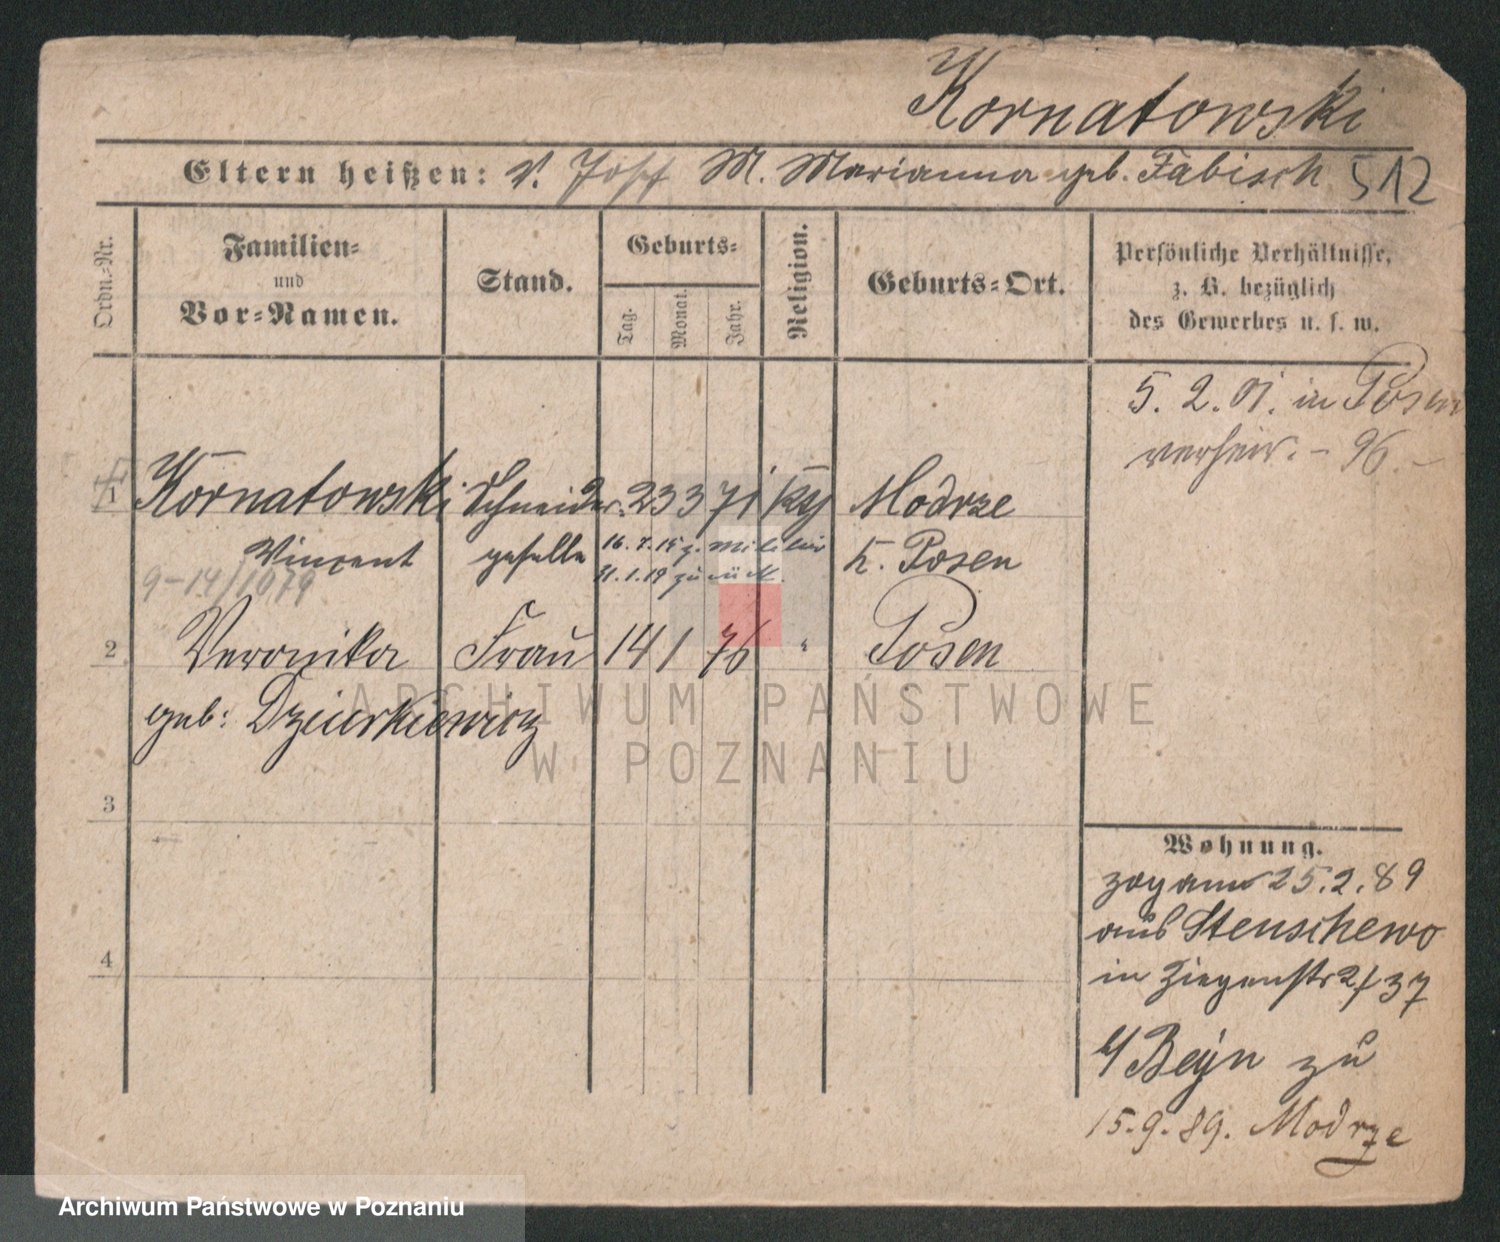 Kornatowski
Eltern heißen: V. Josef M. Marianna geb. Fabisch 512
Ordn.-Nr.
Familien-
und
Vor-Namen.
Stand.
Geburts-
Tag.
Monat.
Jahr.
Religion.
Geburts-Ort.
Persönliche Verhältnisse,
z. B. bezüglich
des Gewerbes u. s. w.
5. 2. 01. in Posen
verheir. - 96. -
1 Kornatowski Schneider- 23 3 71 Modrze
Vinzent geselle 16. 7. 15 z. Militär K. Posen
31. 1. 19 zurück.
9-14/1979
2 Veronika Frau 14 1 76 " Posen
geb: Dzierkiewicz
3
4
Wohnung.
zog am 25. 2. 89
aus Stenschewo
in Ziegenstr 2/37
b/ Beyn zu
15. 9. 89. Modrze
ARCHIWUM PAŃSTWOWE
W POZNANIU
Archiwum Państwowe w Poznaniu